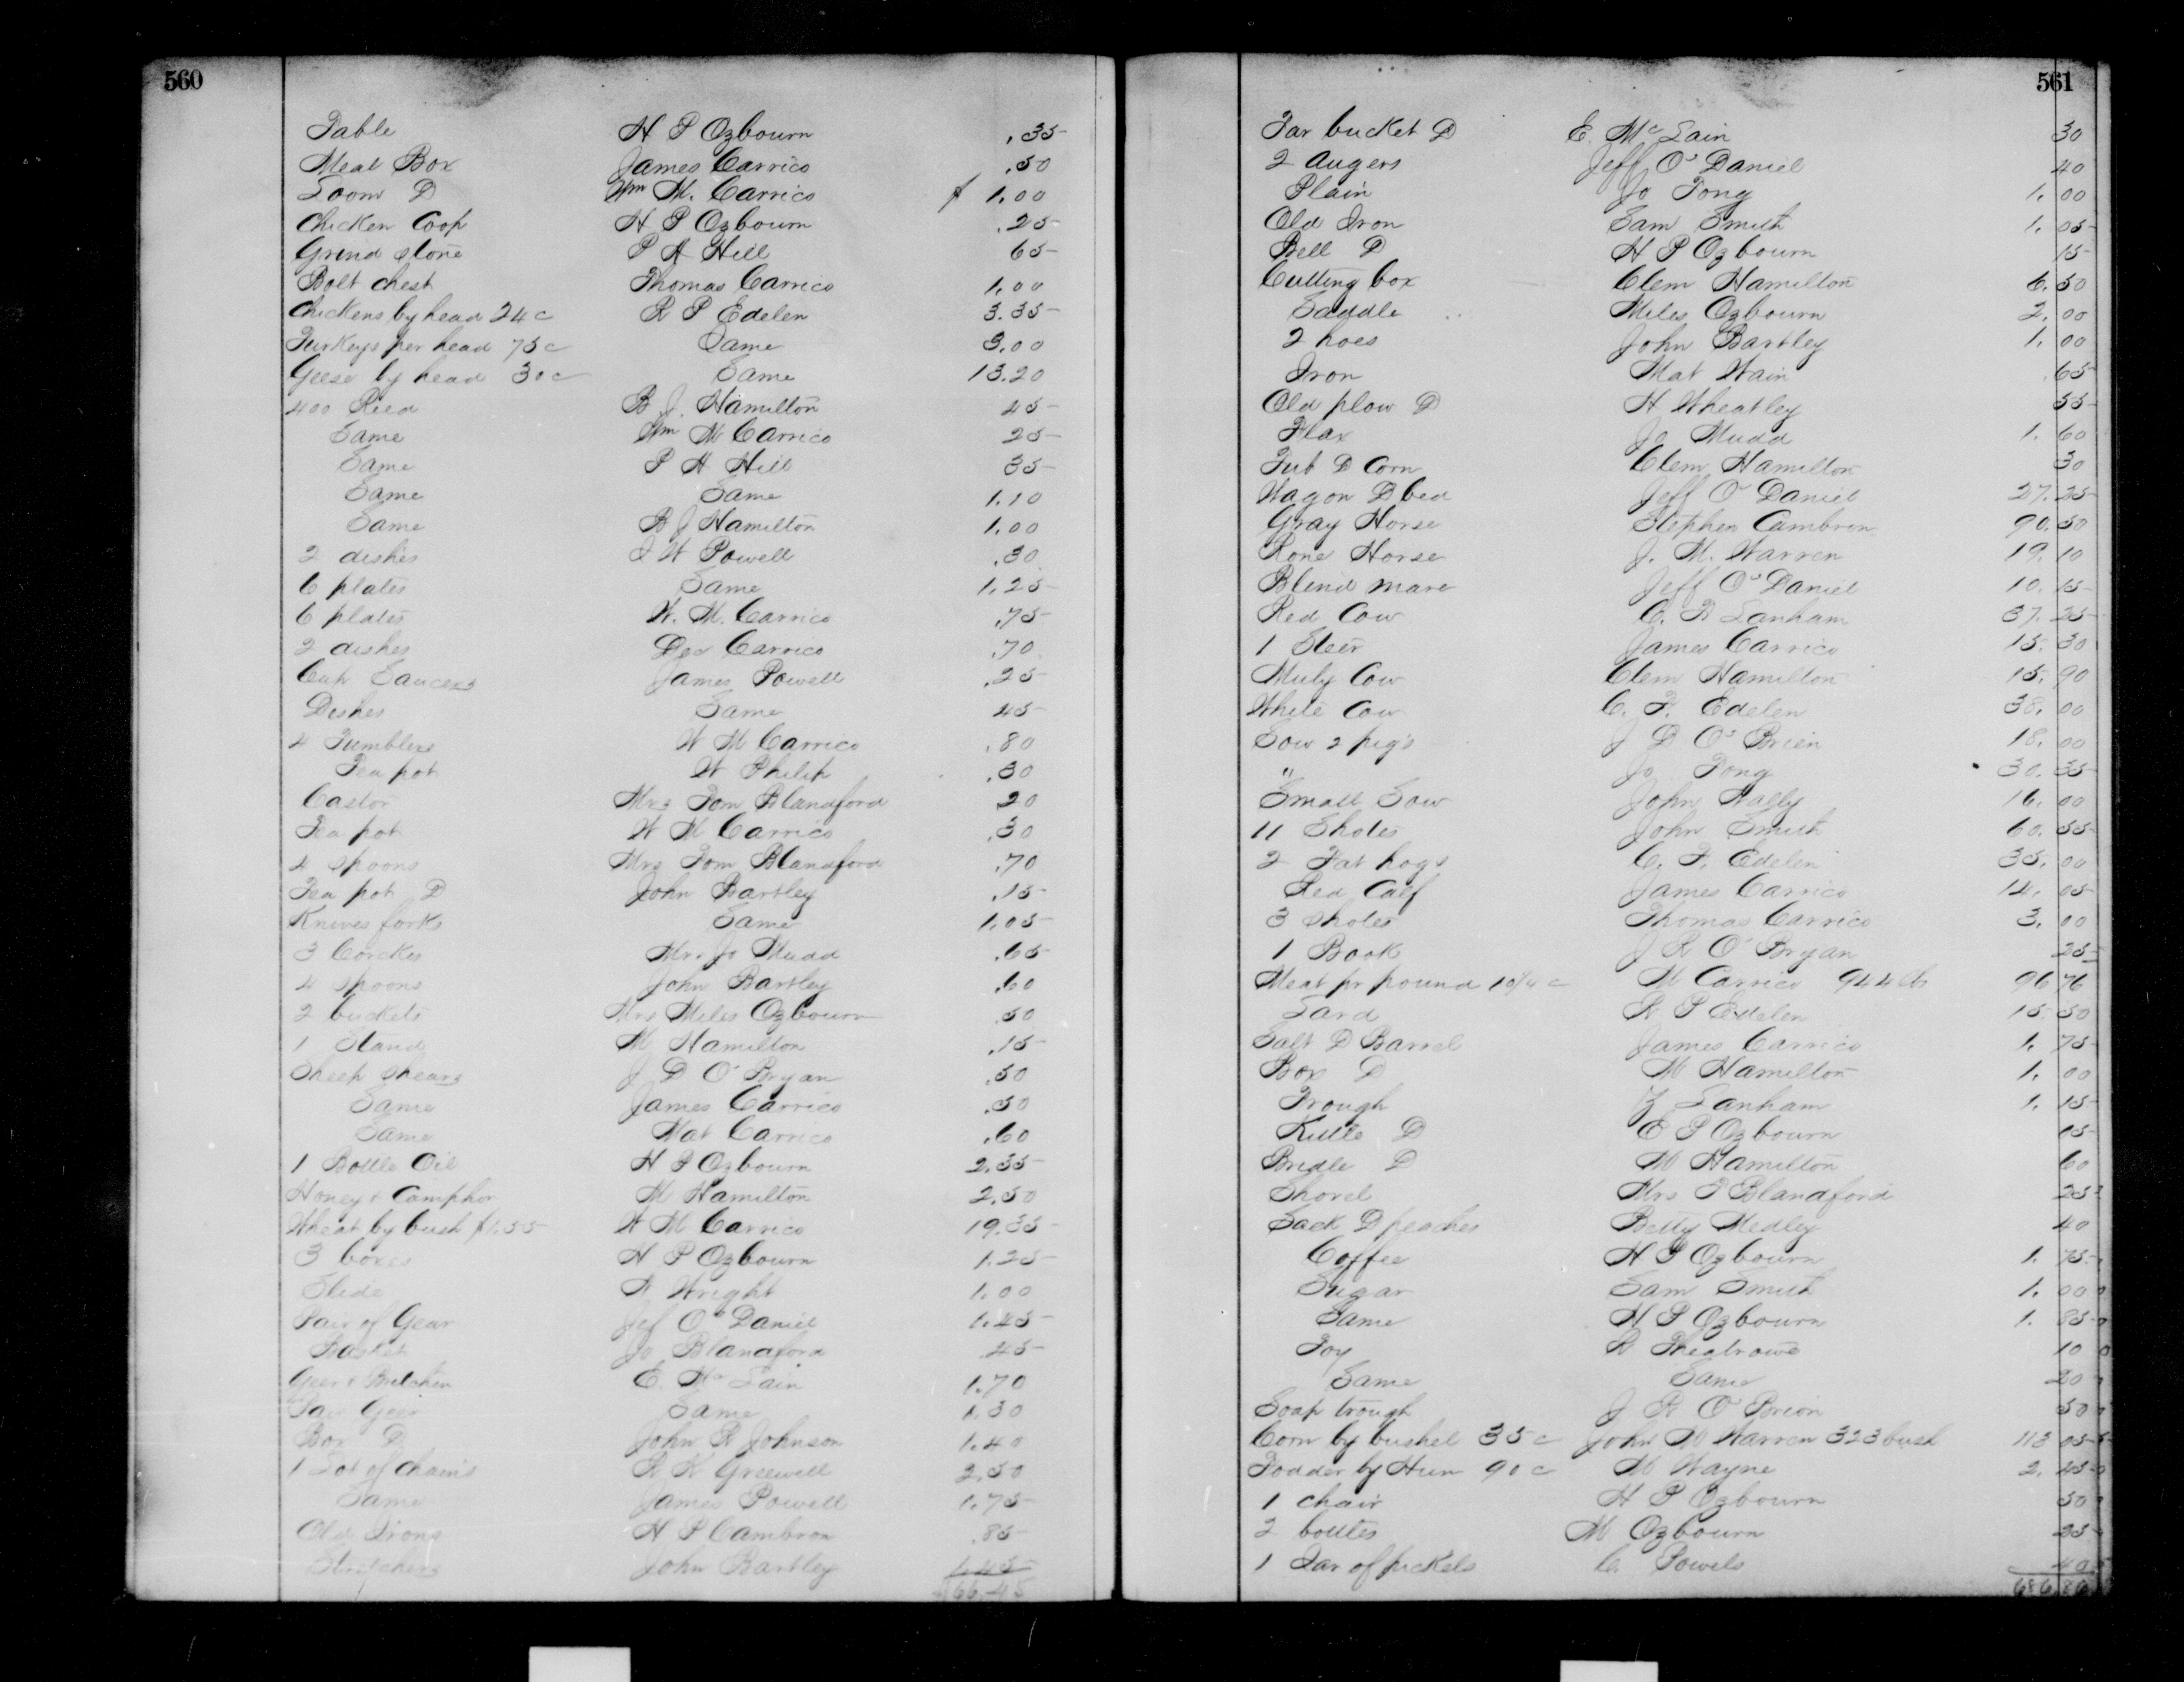 560
Table H P Ozbourn .35
Meat Box James Carrico .50
Loom D Wm M. Carrico $ 1.00
Chicken Coop H P Ozbourn .25
Grind stone P H Hill 65
Bolt chest Thomas Carrico 1.00
Chickens by head 24 c R P Edelen 3.35
Turkeys per head 75 c Same 3.00
Geese by head 30 c Same 13.20
400 Reed B J. Hamilton 45
Same Wm M Carrico 25
Same P H Hill 35
Same Same 1.10
Same B J Hamilton 1.00
2 dishes J W Powell .30
6 plates Same 1.25
6 plates W. M. Carrico .75
2 dishes Carrico .70
Cup Saucers James Powell .25
Dishes Same 45
4 Tumblers W M Carrico .80
Tea pot W Philip .30
Castor Mrs Tom Blandford 20
Tea pot W M Carrico .30
4 spoons Mrs Tom Blandford .70
Tea pot D John Bartley .15
Knives forks Same 1.05
3 Mr. Jo Mudd .65
4 spoons John Bartley .60
2 buckets Mrs Miles Ozbourn .50
1 Stand M Hamilton .15
Sheep shears J D O'Bryan .50
Same James Carrico .50
Same Mat Carrico .60
1 Bottle Oil H P Ozbourn 2.35
Honey & Camphor M Hamilton 2.50
Wheat by bush $1.55 W M Carrico 19.35
3 boxes H P Ozbourn 1.25
Slide N Wright 1.00
Pair of Gear Jef O'Daniel 1.45
Basket Jo Blandford 45
Geer & Britchen E. Mc Lain 1.70
Pair Geer Same 1.30
Box D John R Johnson 1.40
1 Lot of chain's R K Greewell 2.50
Same James Powell 1.75
Old Irons H P Cambron .85
Stretchers John Bartley 1.45
$66.45
561
Tar bucket D E. Mc Lain 30
2 Augers Jeff O'Daniel 40
Plain Jo Tong 1.00
Old Iron Sam Smith 1.05
Bell D H P Ozbourn 15
Cutting box Clem Hamilton 6.50
Saddle Miles Ozbourn 2.00
2 hoes John Bartley 1.00
Iron Mat Wain .65
Old plow D H Wheatley 55
Flax Jo Mudd 1.60
Tub D Corn Clem Hamilton 30
Wagon D bed Jeff O'Daniel 27.25
Gray Horse Stephen Cambron 90.50
Rone Horse J. M. Warren 19.10
Blind mare Jeff O'Daniel 10.15
Red Cow C. R Lanham 37.25
1 Steer James Carrico 15.30
Muly Cow Clem Hamilton 15.90
White Cow C. F. Edelen 38.00
Sow 2 pig's J D O'Brien 18.00
" Jo Tong 30.35
Small Sow John Nally 16.00
11 Shotes John Smith 60.55
2 Fat hogs C. F. Edelen 35.00
Red Calf James Carrico 14.05
3 Shotes Thomas Carrico 3.00
1 Book J R O'Bryan 25
Meat pr pound 10 1/4 c M Carrico 944 lbs 96 76
Lard R P Edelen 15 50
Salt D Barrel James Carrico 1.75
Box D M Hamilton 1.00
Trough Lanham 1.15
Kittle D E P Ozbourn 15
Bridle D M Hamilton 60
Shovel Mrs T Blandford 25
Sack D peaches Betty Medley 40
Coffee H P Ozbourn 1.75
Sugar Sam Smith 1.00
Same H P Ozbourn 1.85
Toy R 10
Same Same 20
Soap trough J R O'Brion 50
Corn by bushel 35 c John M Warren 323 bush 113 05
Fodder by Hun 90 c M Wayne 2.45
1 chair H P Ozbourn 50
2 bottles M Ozbourn 25
1 Jar of pickels C. Powels 40
686.86